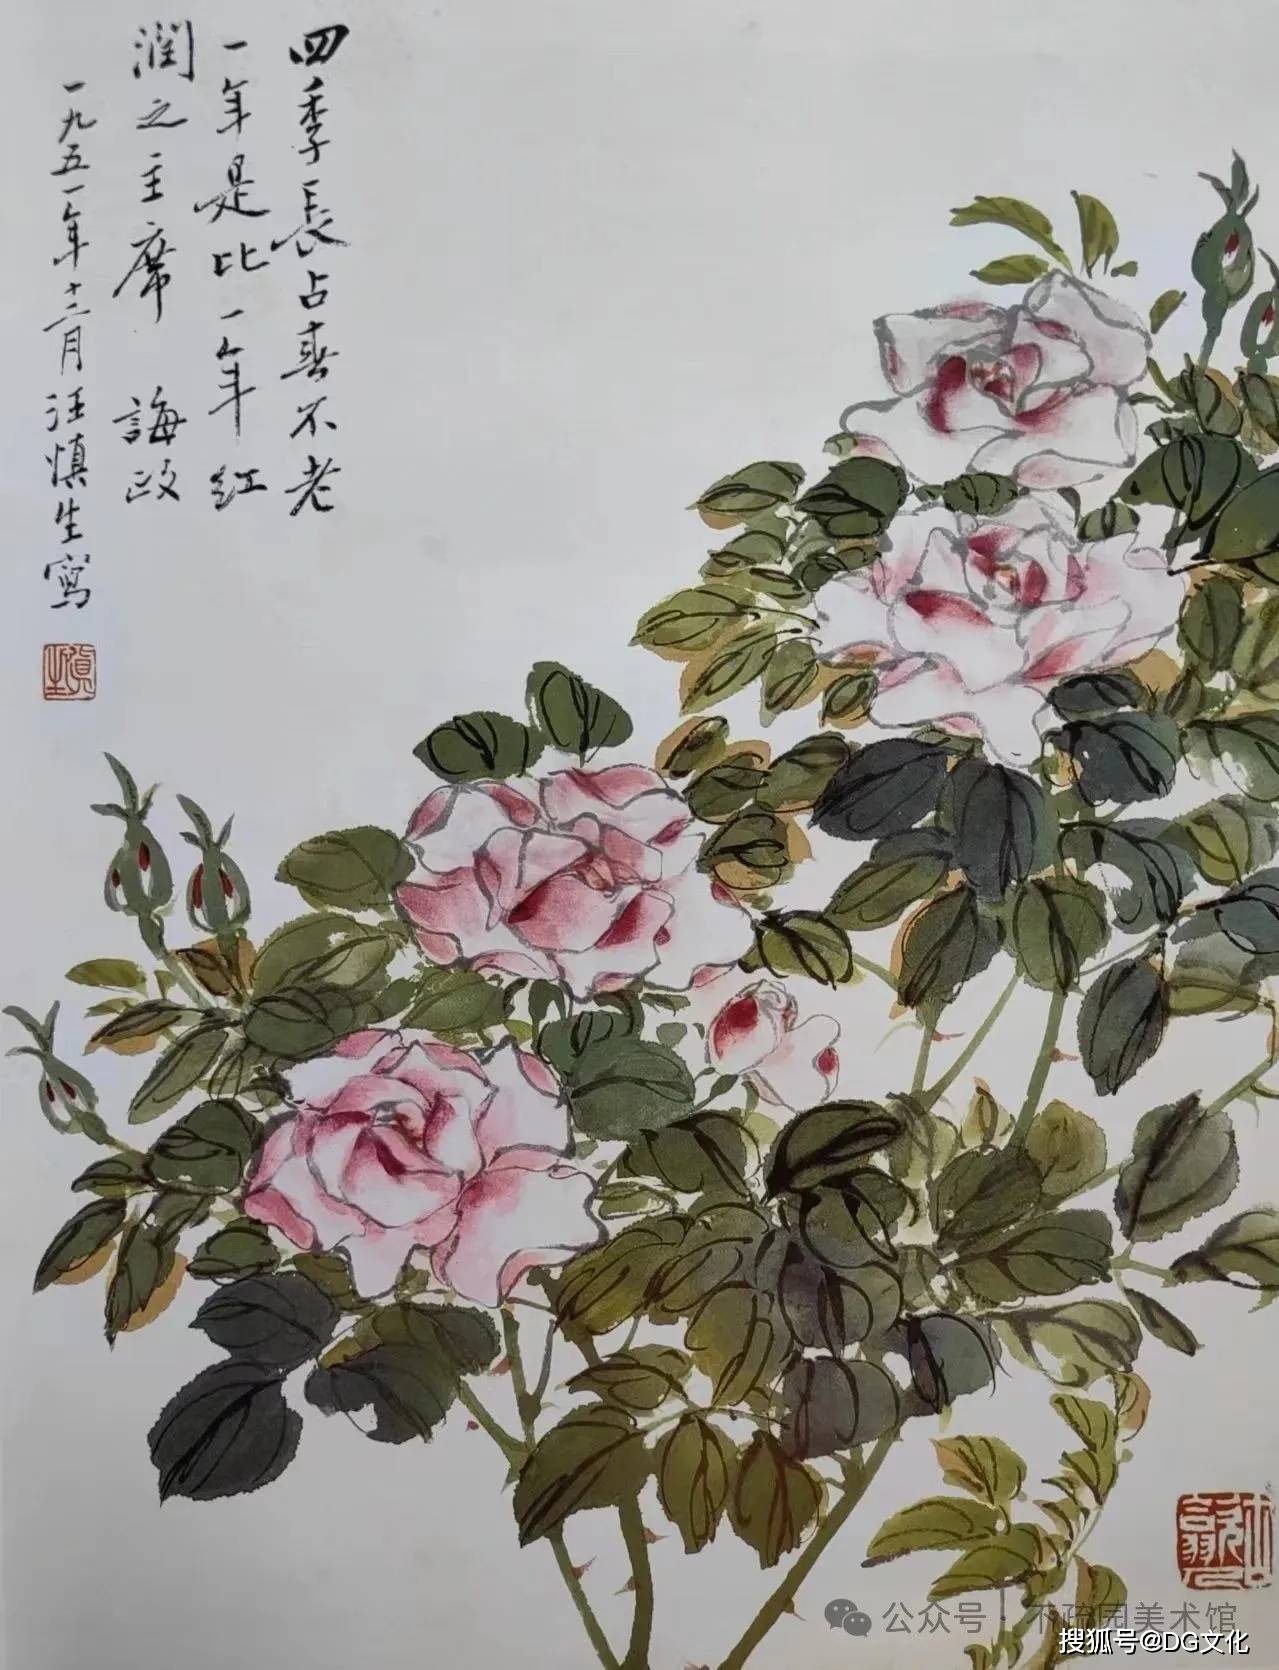 四季長占春不老
一年是比一年红
潤之主席 誨政
一九五一年十二月汪慎生寫
慎生
公众号·不疏园美术馆
搜狐号@DG文化